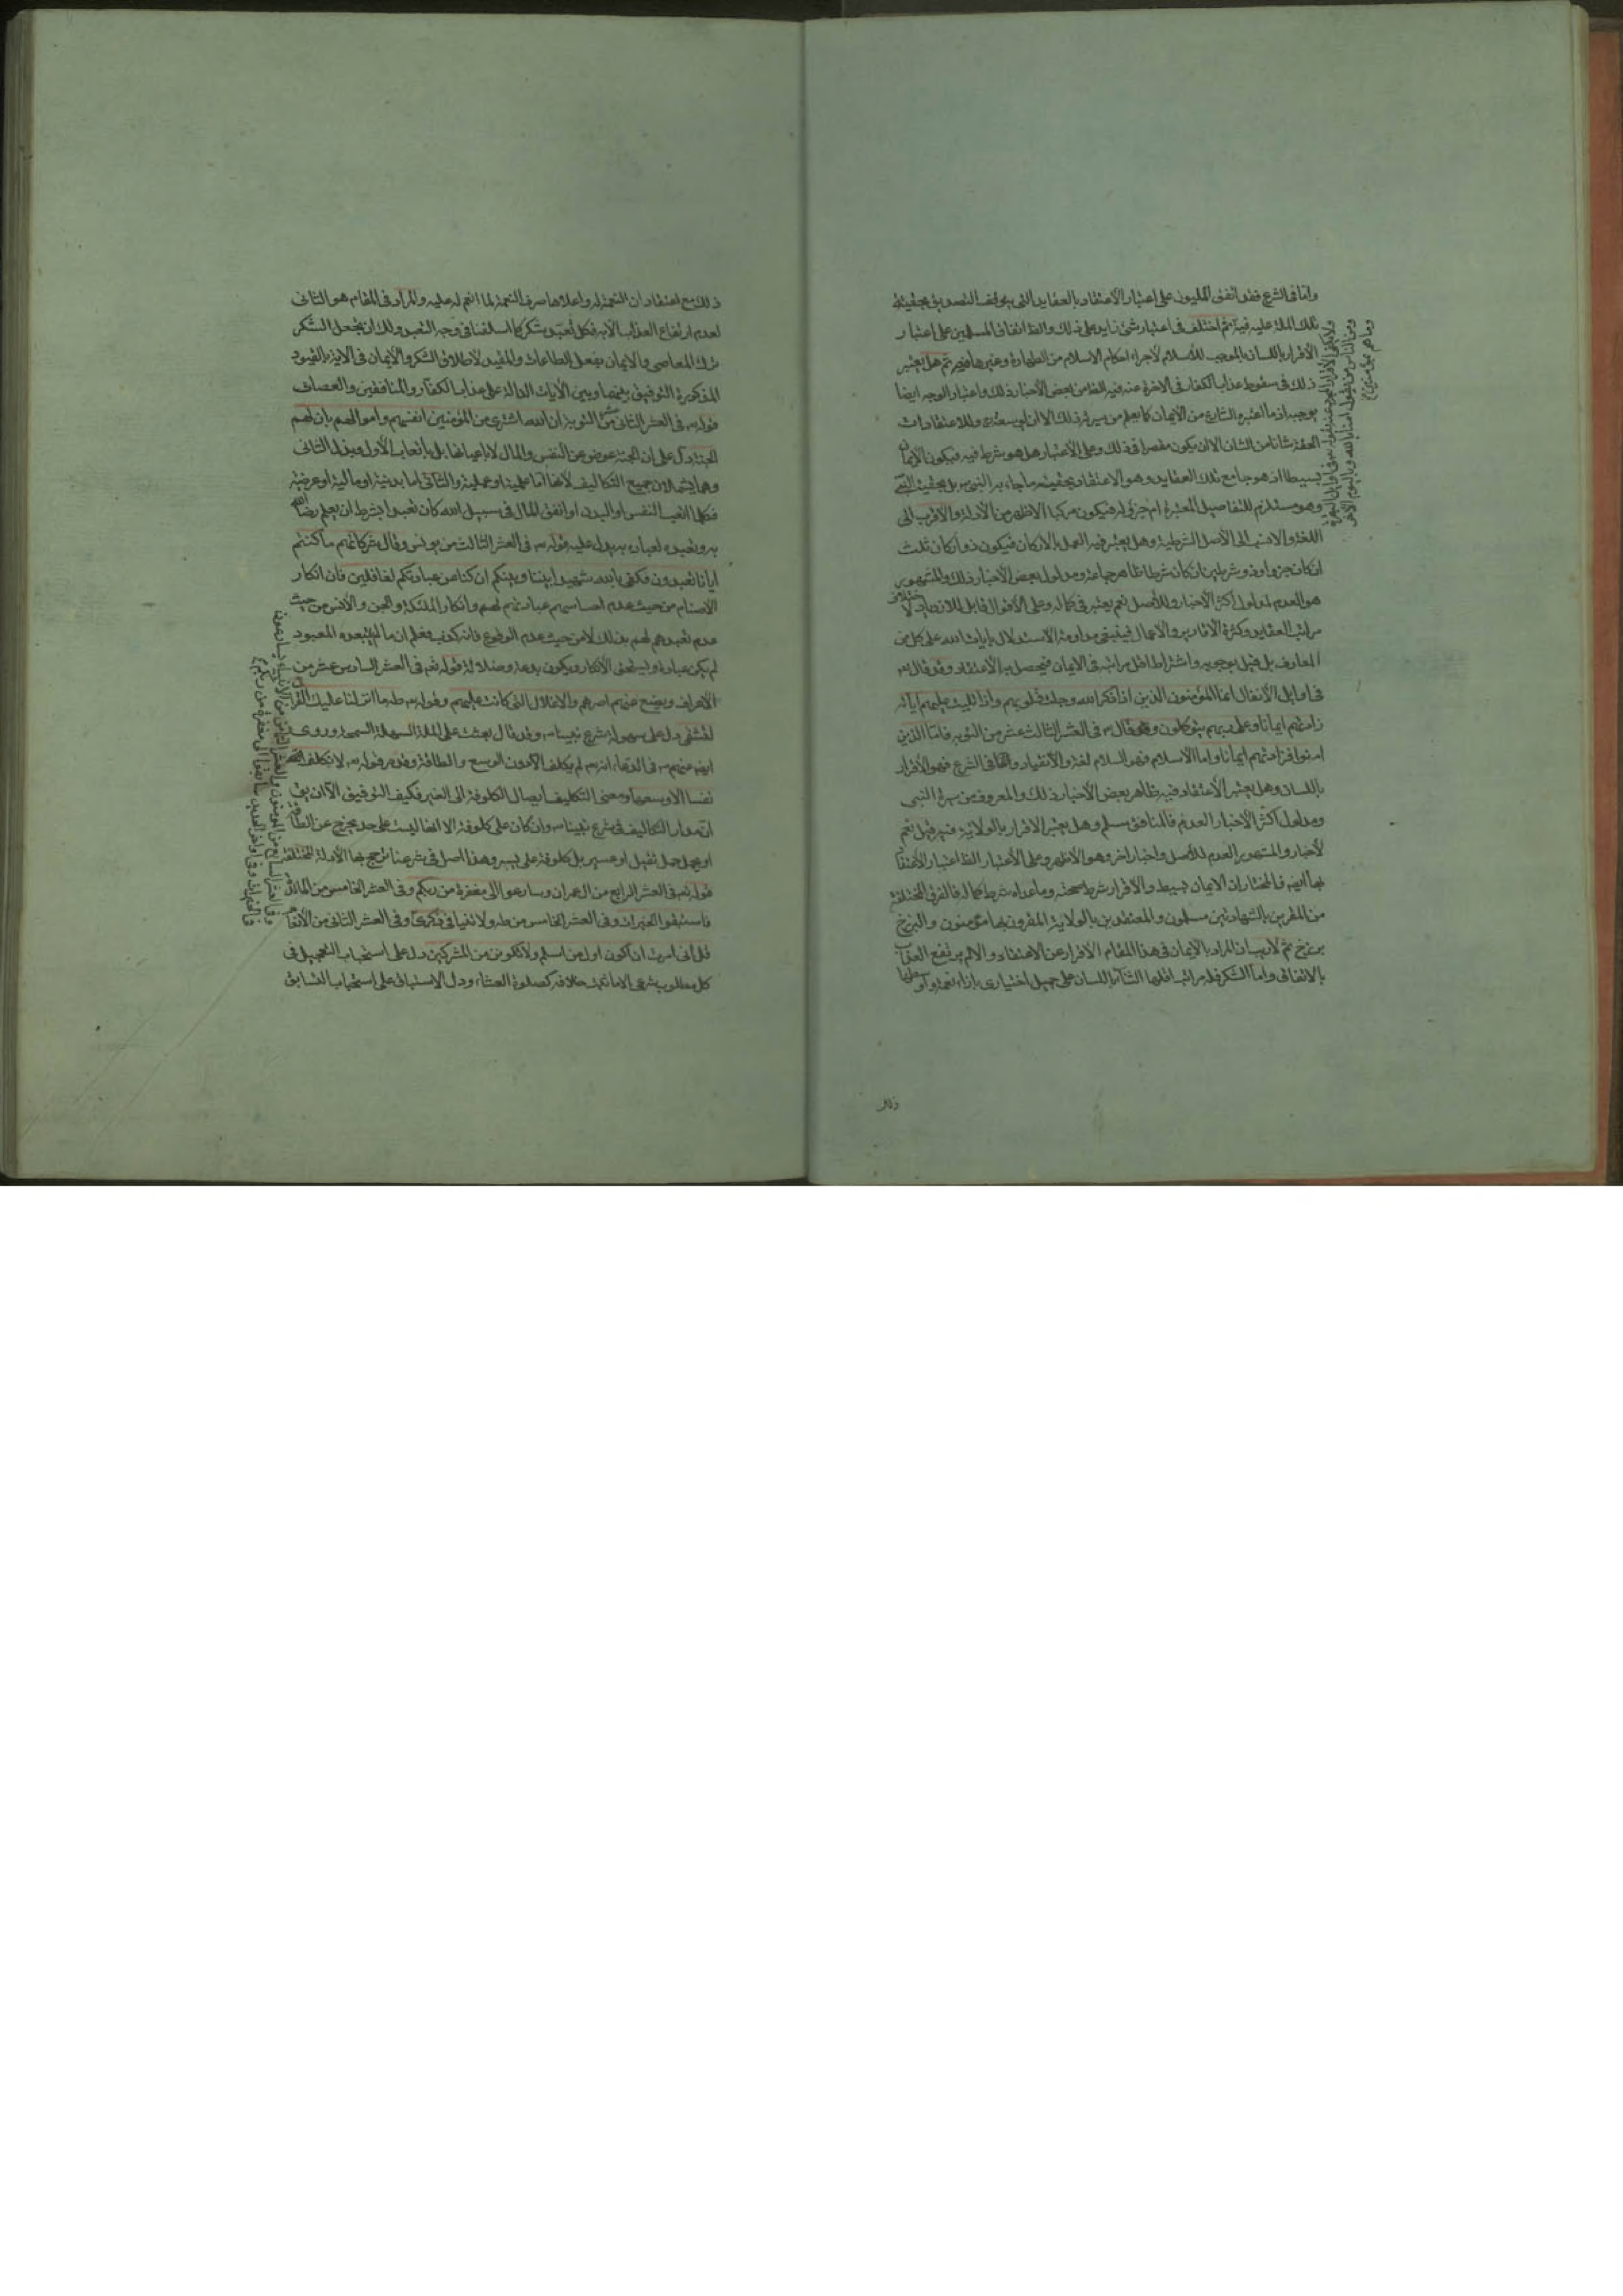 واما فى الشرع فقد اتفق المليون على اعتبار الاعتقاد بالعقايد التى يتوقف التصديق بحقيقة
تلك الملة عليه فيه ثم اختلف فى اعتبار شئ زايد على ذلك والظ اتفاق المسلمين على اعتبار
الاقرار باللسان بالموجب للاسلام لاجراء احكام الاسلام من الطهارة وغيرها فيه ثم هل يعتبر
ذلك فى سقوط عذاب الكفار فى الاخرة عنه فيه الظ من بعض الاخبار ذلك واعتبار الوجه ايضا
بوجبه اذ ما اعتبره الشارع من الايمان كما يعلم من سيرته ذلك الا ان وللاعتقادات
الحقة شانا من الشان الا ان يكون مقصرا فى ذلك وعلى الاعتبار هل هو شرط فيه فيكون الايمان
بسيطا اذ هو جامع تلك العقايد وهو الاعتقاد بحقيقة ما جاء به النبى بل بحقيقة النبى
وهو مستلزم للتفاصيل المعتبرة ام جزؤ له فيكون مركبا الاظهر من الادلة والاقرب الى
اللغة والاصل الشرطية وهل يعتبر فيه العمل بالاركان فيكون ذو اركان ثلث
ان كان جزءا وذو شرطين ان كان شرطا ظاهر جماعة ومدلول بعض الاخبار ذلك والمشهور
هو العدم لمدلول اكثر الاخبار وللاصل نعم يعتبر فى كماله وعلى الاقوال قابل للازدياد لاختلاف
مراتب العقايد وكثرة الاقارير والاعمال فينبغى مداومة الاستدلال بايات الله على كل من
المعارف بل قيل بوجوبه واشتراط اقل مراتبه فى الايمان فيحصل به الاعتقاد وقد قال
فى اوايل الانفال انما المؤمنون الذين اذا ذكر الله وجلت قلوبهم واذا تليت عليهم اياته
زادتهم ايمانا وعلى ربهم يتوكلون وقال فى العشر الثالث عشر من التوبه فاما الذين
امنوا فزادتهم ايمانا واما الاسلام فهو السلام لغة والانقياد واما فى الشرع فهو الاقرار
باللسان وهل يعتبر الاعتقاد فيه ظاهر بعض الاخبار ذلك والمعروف من سيرة النبى
ومدلول اكثر الاخبار العدم فالمنافق مسلم وهل يعتبر الاقرار بالولاية فيه قيل نعم
لاخبار والمشهور العدم للاصل واخبار اخر وهو الاظهر وعلى الاعتبار الظ اعتبار الاعتقاد
بها ايضا فالمختار ان الايمان بسيط والاقرار شرط صحته وما عداه شرط كماله فالفرق المختلفة
من المقرين بالشهادتين مسلمون والمعتقدين بالولاية المقرون بها مؤمنون والبرزخ
برزخ ثم لا ريب ان المراد بالايمان فى هذا المقام الاقرار عن الاعتقاد والا لم يرتفع العذاب
بالاتفاق واما الشكر فله مراتب اقلها الثناء باللسان على جميل اختيارى بازاء نعمة واوسطها
ومن الناس من يقول امنا بالله وباليوم الاخر
وما هم بمؤمنين
ذلك
ذلك مع اعتقاد ان النعمة له واعلاها صرف النعمة لما انعم له عليه والمراد فى المقام هو الثانى
لعدم ارتفاع العذاب الا به فكل تعبد شكر كما اسلفنا فى وجه التعبد ولك ان تجعل الشكر
ترك المعاصى والايمان بفعل الطاعات والمقيد لاطلاق الشكر والايمان فى الاية بالقيود
المذكورة التوفيق بينها وبين الايات الدالة على عذاب الكفار والمنافقين والعصات
قوله فى العشر الثانى عشر من التوبة ان الله اشترى من المؤمنين انفسهم واموالهم بان لهم
الجنة دل على ان الجنة عوض عن النفس والمال لا باعيانها بل باتعاب الاول وبذل الثانى
وهما يشملان جميع التكاليف لانها اما علمية او عملية والثانى اما بدنية او مالية او عرضية
فكلما اتعب النفس او البدن او انفق المال فى سبيل الله كان تعبدا بشرط ان يعلم رضا الله
به وتعبده لعباده به يدل عليه قوله فى العشر الثالث من يونس وقال شركائهم ما كنتم
ايانا تعبدون فكفى بالله شهيدا بيننا وبينكم ان كنا عن عبادتكم لغافلين فان انكار
الاصنام من حيث عدم احساسهم عبادتهم لهم وانكار الملئكة والجن والانس من حيث
عدم تعبدهم لهم بذلك لا من حيث عدم الوقوع فانه كذب فعلم ان ما لم يتعبده المعبود
لم يكن عبادة ويستحق الانكار ويكون بدعة وضلالة قوله تعه فى العشر السادس عشر من
الاعراف ويضع عنهم اصرهم والاغلال التى كانت عليهم وقوله طه ما انزلنا عليك القران
لتشقى دل على سهولة شرع نبينا وقد قال بعثت على الملة السهلة السمحة وروى
ايضا عنهم فى الدعاء انه لم يكلف الا دون الوسع والطاقة وقد مر قوله لا تكلف الله
نفسا الا وسعها ومعنى التكليف ايصال الكلوفة الى الغير فكيف التوفيق الا ان يق
ان مدار التكاليف فى شرع نبينا وان كان على كلوفة الا انها ليست على حد يخرج عن الطاقة
او يحمل حمل ثقيل او عسير بل كلوفة على يسير وهذا اصل فى شرعنا ترجح بها الادلة المختلفة
قوله تعه فى العشر الرابع من ال عمران وسارعوا الى مغفرة من ربكم وفى العشر الخامس من المائدة
فاستبقوا الخيرات وفى العشر الخامس من طه ولا تنيا فى ذكرى وفى العشر الثانى من الانعام
قل انى امرت ان اكون اول من اسلم ولا تكونن من المشركين دل على استحباب التعجيل فى
كل مطلوب شرعى الا ما ثبت خلافه كصلوة العشاء ودل الاستباق على استحباب التسابق